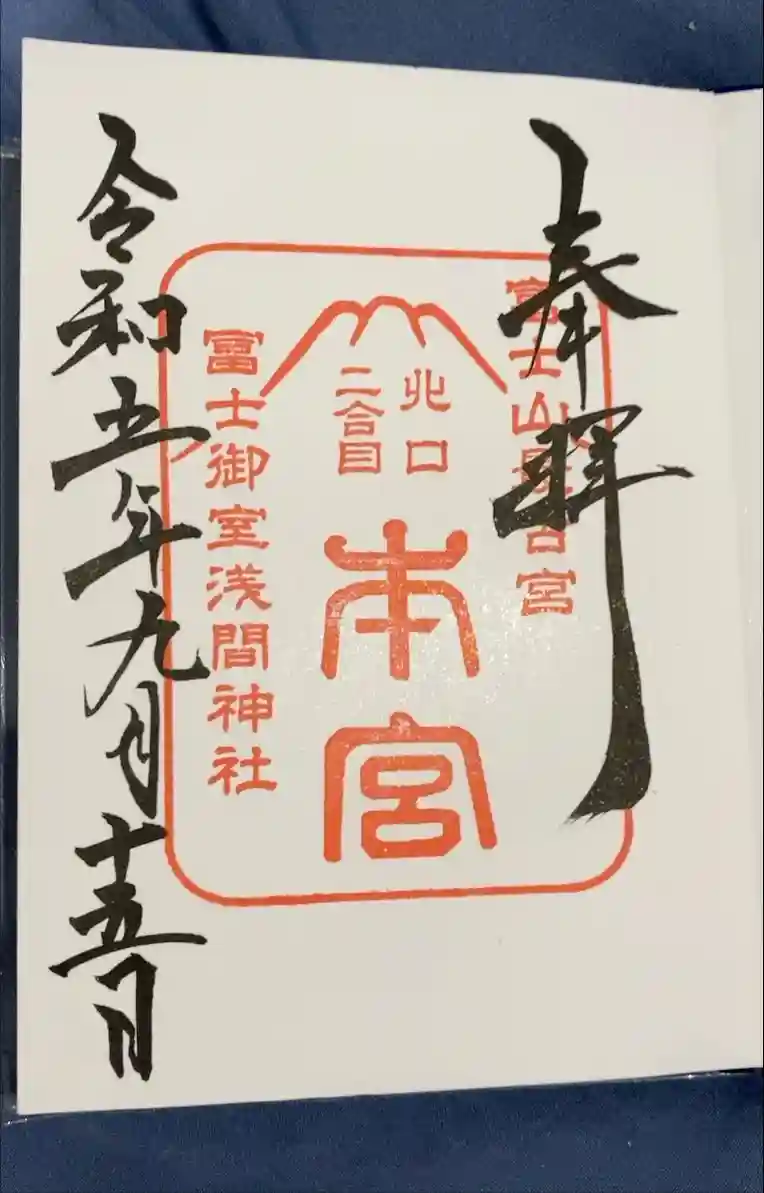 奉拜
富士山最古宮
北口
二合目
本宮
冨士御室浅間神社
令和五年九月十五日